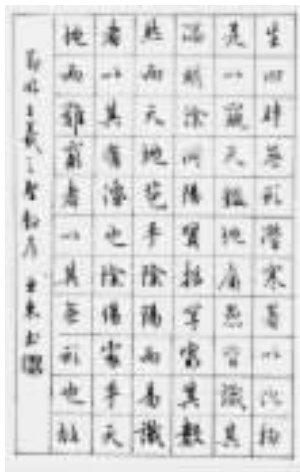 生四時無形潛寒暑以化物
是以窺天鑑地庸愚皆識其
端明陰洞陽賢哲罕窮其數
然而天地苞乎陰陽而易識
者以其有像也陰陽處乎天
地而難窮者以其無形也故
節臨王羲之聖教序